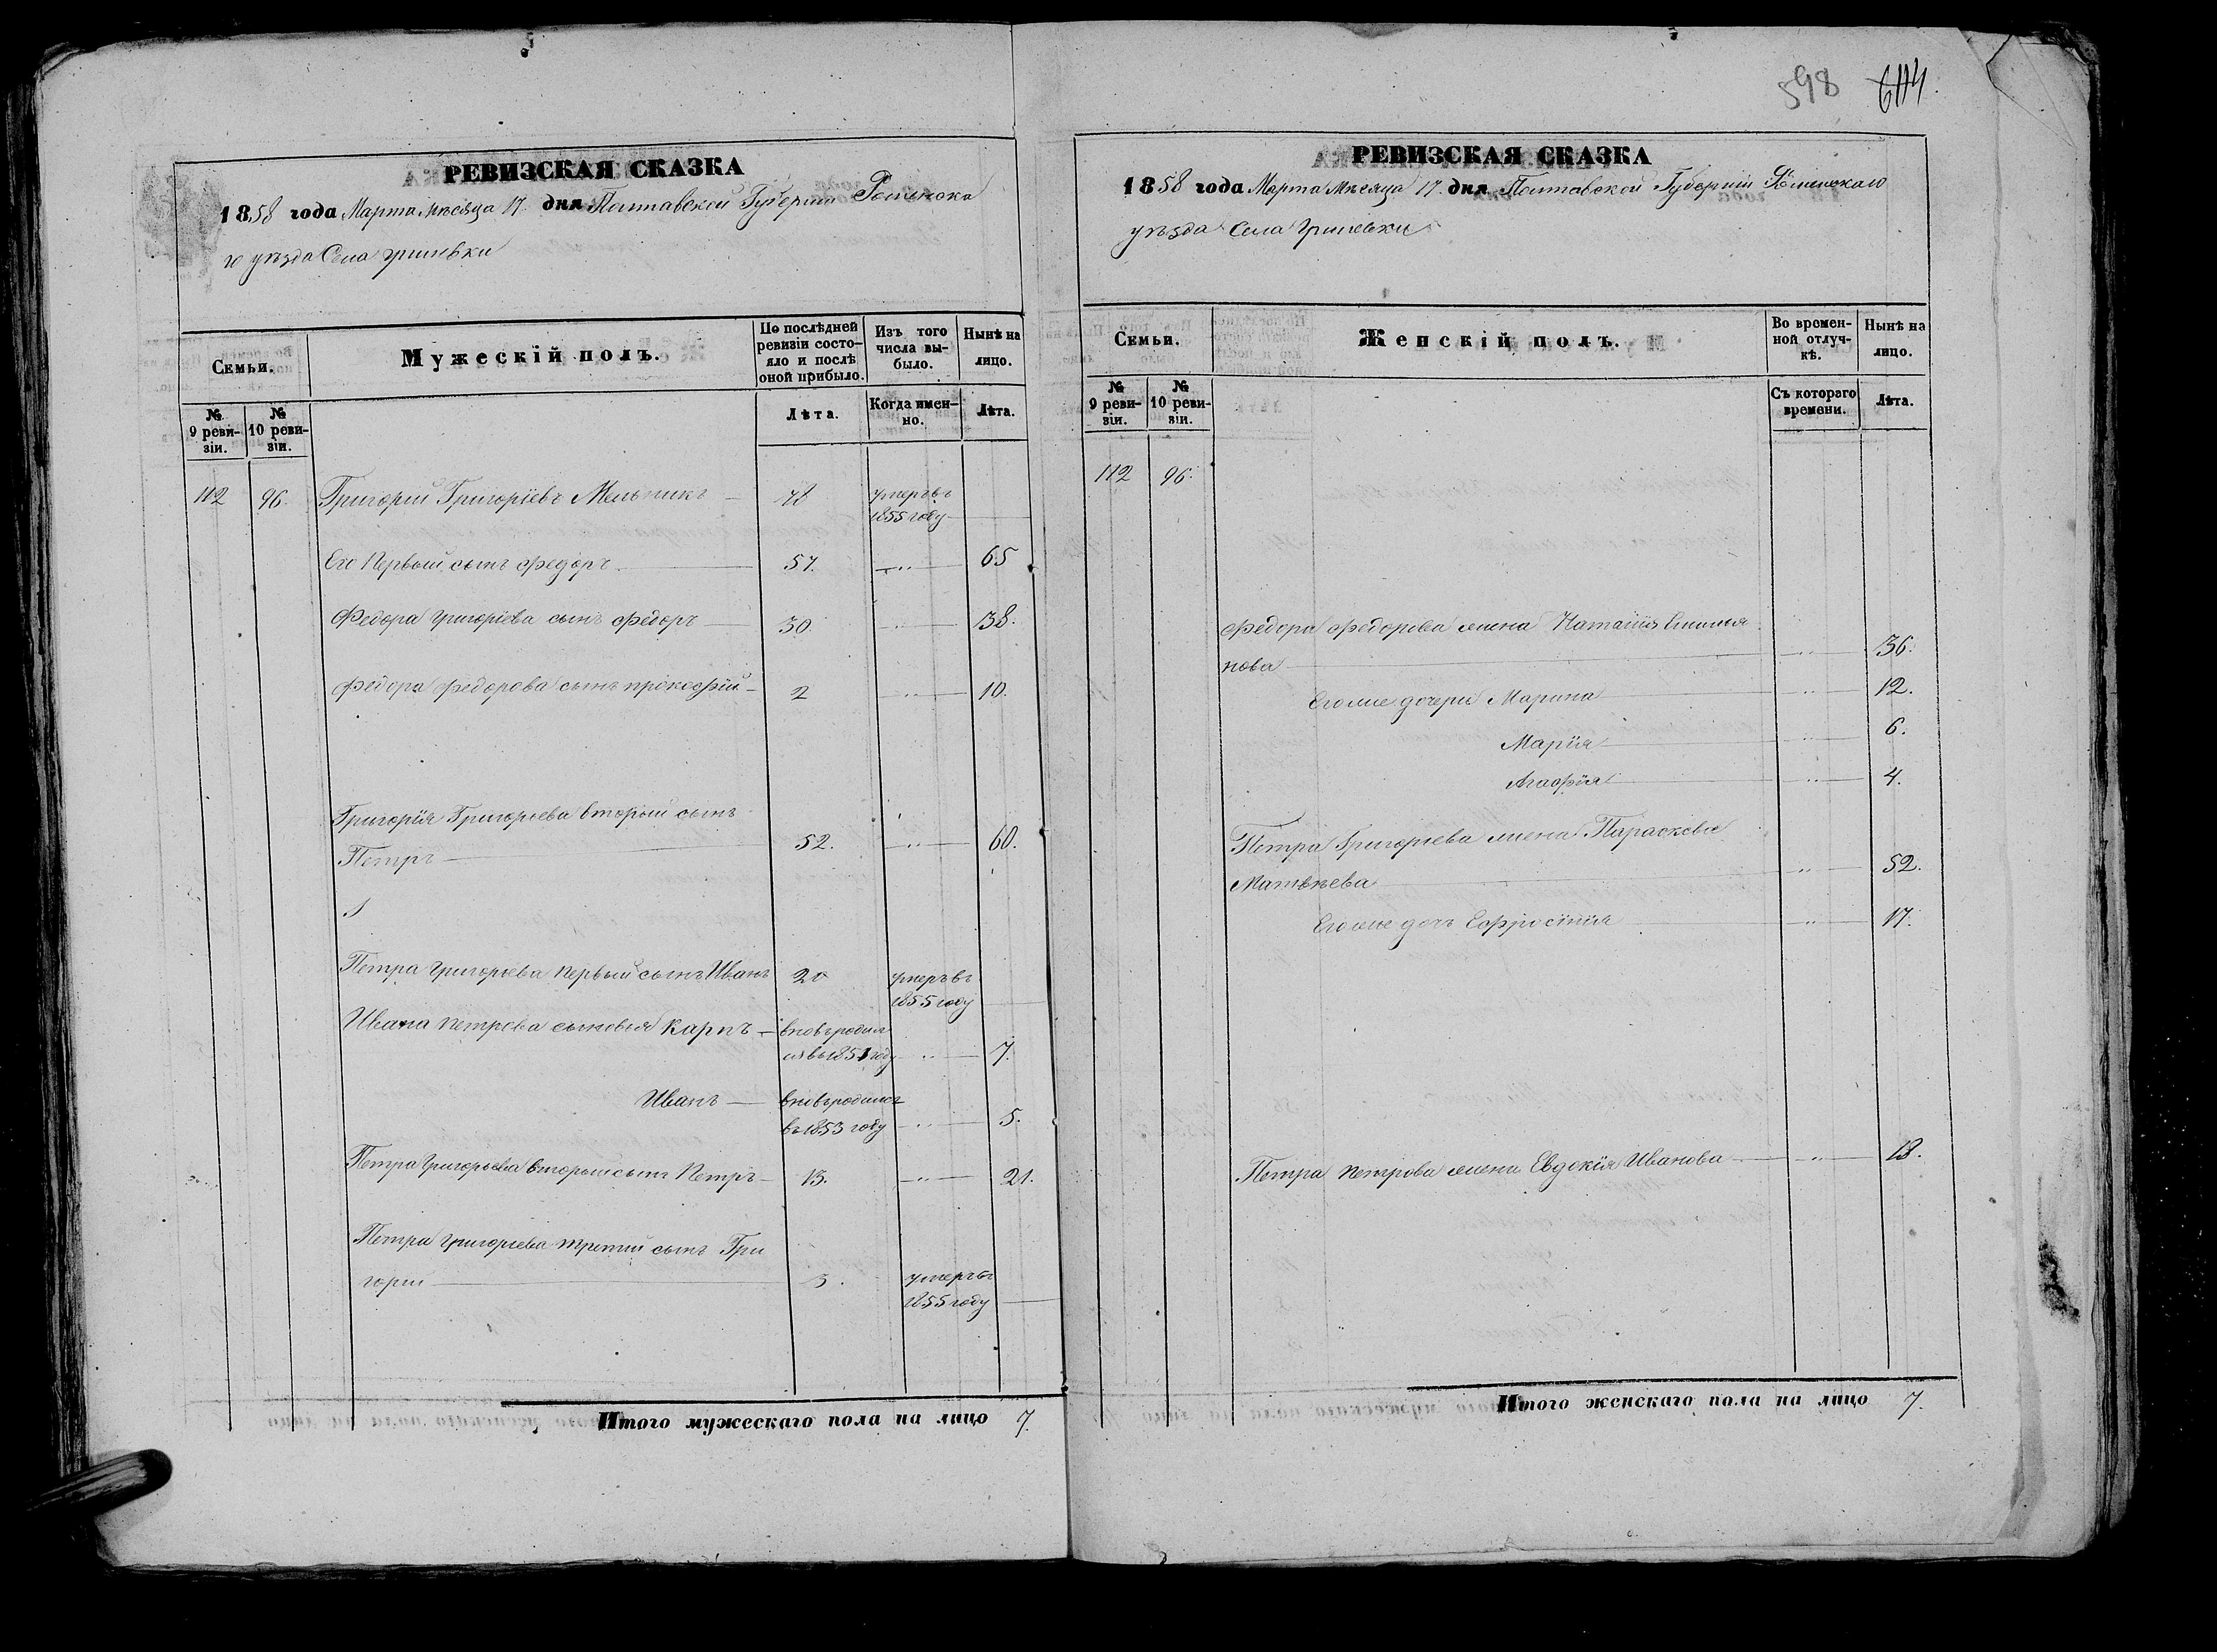 598 604.
РЕВИЗСКАЯ СКАЗКА
1858 года Марта месяца 17. дня Полтавской Губерніи Роменска
го уѣзда Села Гришевки
Семьи.
Мужескій полъ.
По послѣдней ревизіи состояло и послѣ оной прибыло.
Изъ того числа выбыло.
Нынѣ на лицо.
№ 9 ревизіи.
№ 10 ревизіи.
Лѣта.
Когда именно.
Лѣта.
112 96. Григорій Григоріевъ Мельникъ 78 умеръ въ
1855 году
Его Первый сынъ Федоръ 57. 65
Федора Григоріева сынъ Федоръ 30. 38.
Федора Федорова сынъ Прокофій 2 10.
Григорія Григорьева вторый сынъ
Петръ 52. 60.
Петра Григорьева Первый сынъ Иванъ 20 умеръ въ
1855 году
Ивана Петрова сыновья Карпъ вновь родил
ся въ 1851 году 7.
Иванъ вновь родился
въ 1853 году 5.
Петра Григорьева вторый сынъ Петръ 13. 21.
Петра Григорьева третій сынъ Гри
горій 3. умеръ въ
1855 году
Итого мужескаго пола на лицо 7.
РЕВИЗСКАЯ СКАЗКА
1858 года Марта Мѣсяца 17. дня Полтавской Губерніи Роменскаго
уѣзда Села Гришевки
Семьи.
Женскій полъ.
Во временной отлучкѣ.
Нынѣ на лицо.
№ 9 ревизіи.
№ 10 ревизіи.
Съ котораго времени.
Лѣта.
112 96.
Федора Федорова жена Наталія
нова 36.
Его же дочери Марина 12.
Марія 6.
Агафія 4.
Петра Григорьева жена Параскева
Матвѣева 52.
Его же дочь Ефросинія 17.
Петра Петрова жена Евдокія Иванова 18.
Итого женскаго пола на лицо 7.